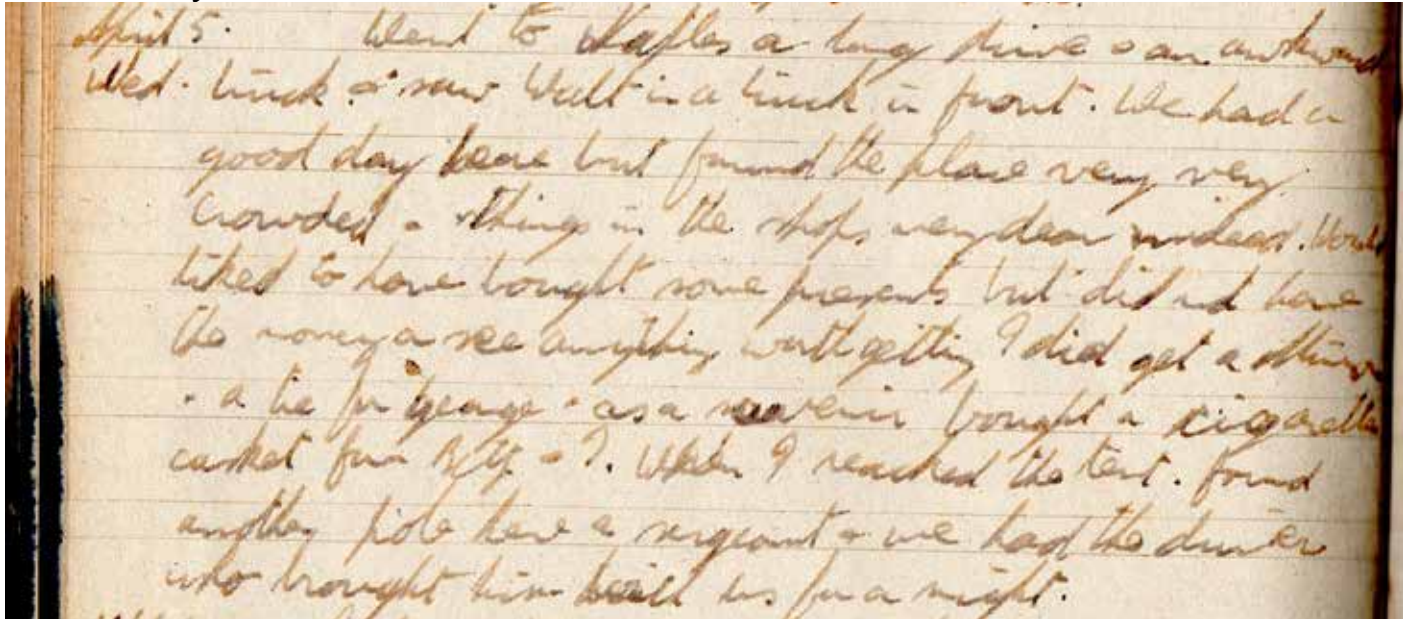 April 5. Went to Naples a long drive & an awkward
Wed. truck & saw Walt in a truck in front. We had a
good day here but found the place very very
crowded & things in the shops very dear indeed. Would
liked to have bought some presents but did not have
the money or see anything worth getting I did get a
& a tie for George & as a souvenir bought a cigarette
casket for & I. When I reached the tent. found
another pole here a sergeant & we had the driver
who brought him with us for a night.